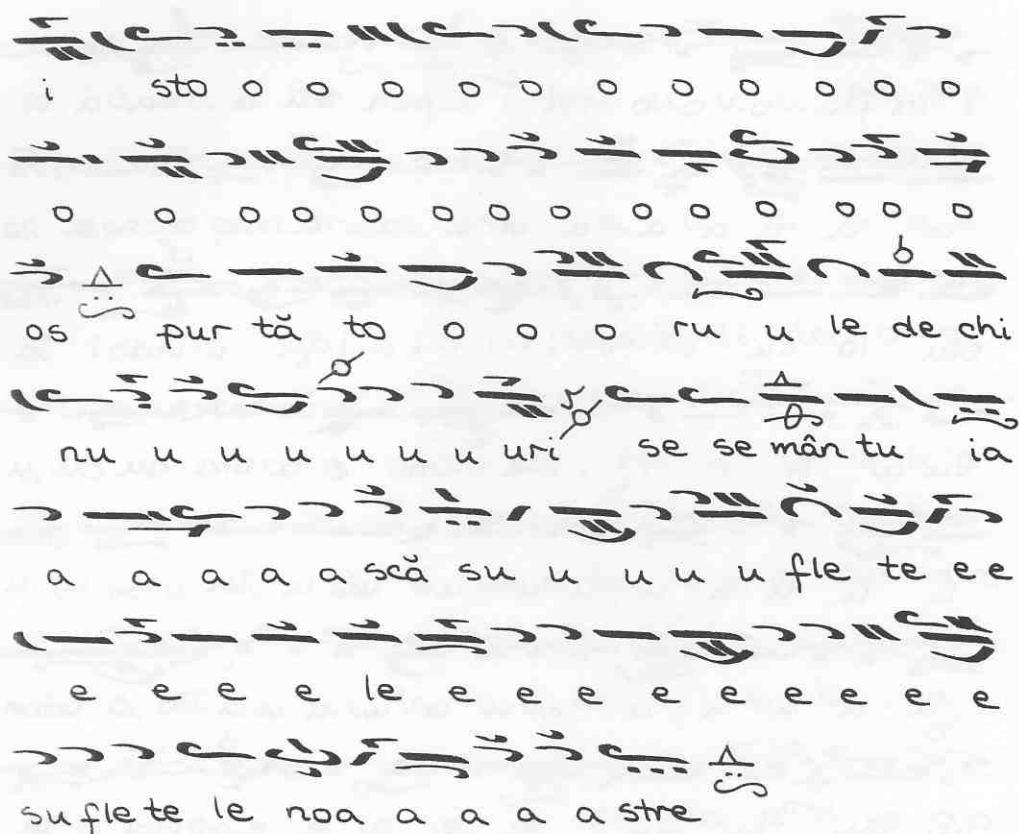 i sto o o o o o o o o o o o
o o o o o o o o o o o o o o
os pur tă to o o o ru u le de chi
ru u u u u u u uri se se mân tu ia
a a a a a scă su u u u u fle te e e
e e e e le e e e e e e e e e
su fle te le noa a a a a stre